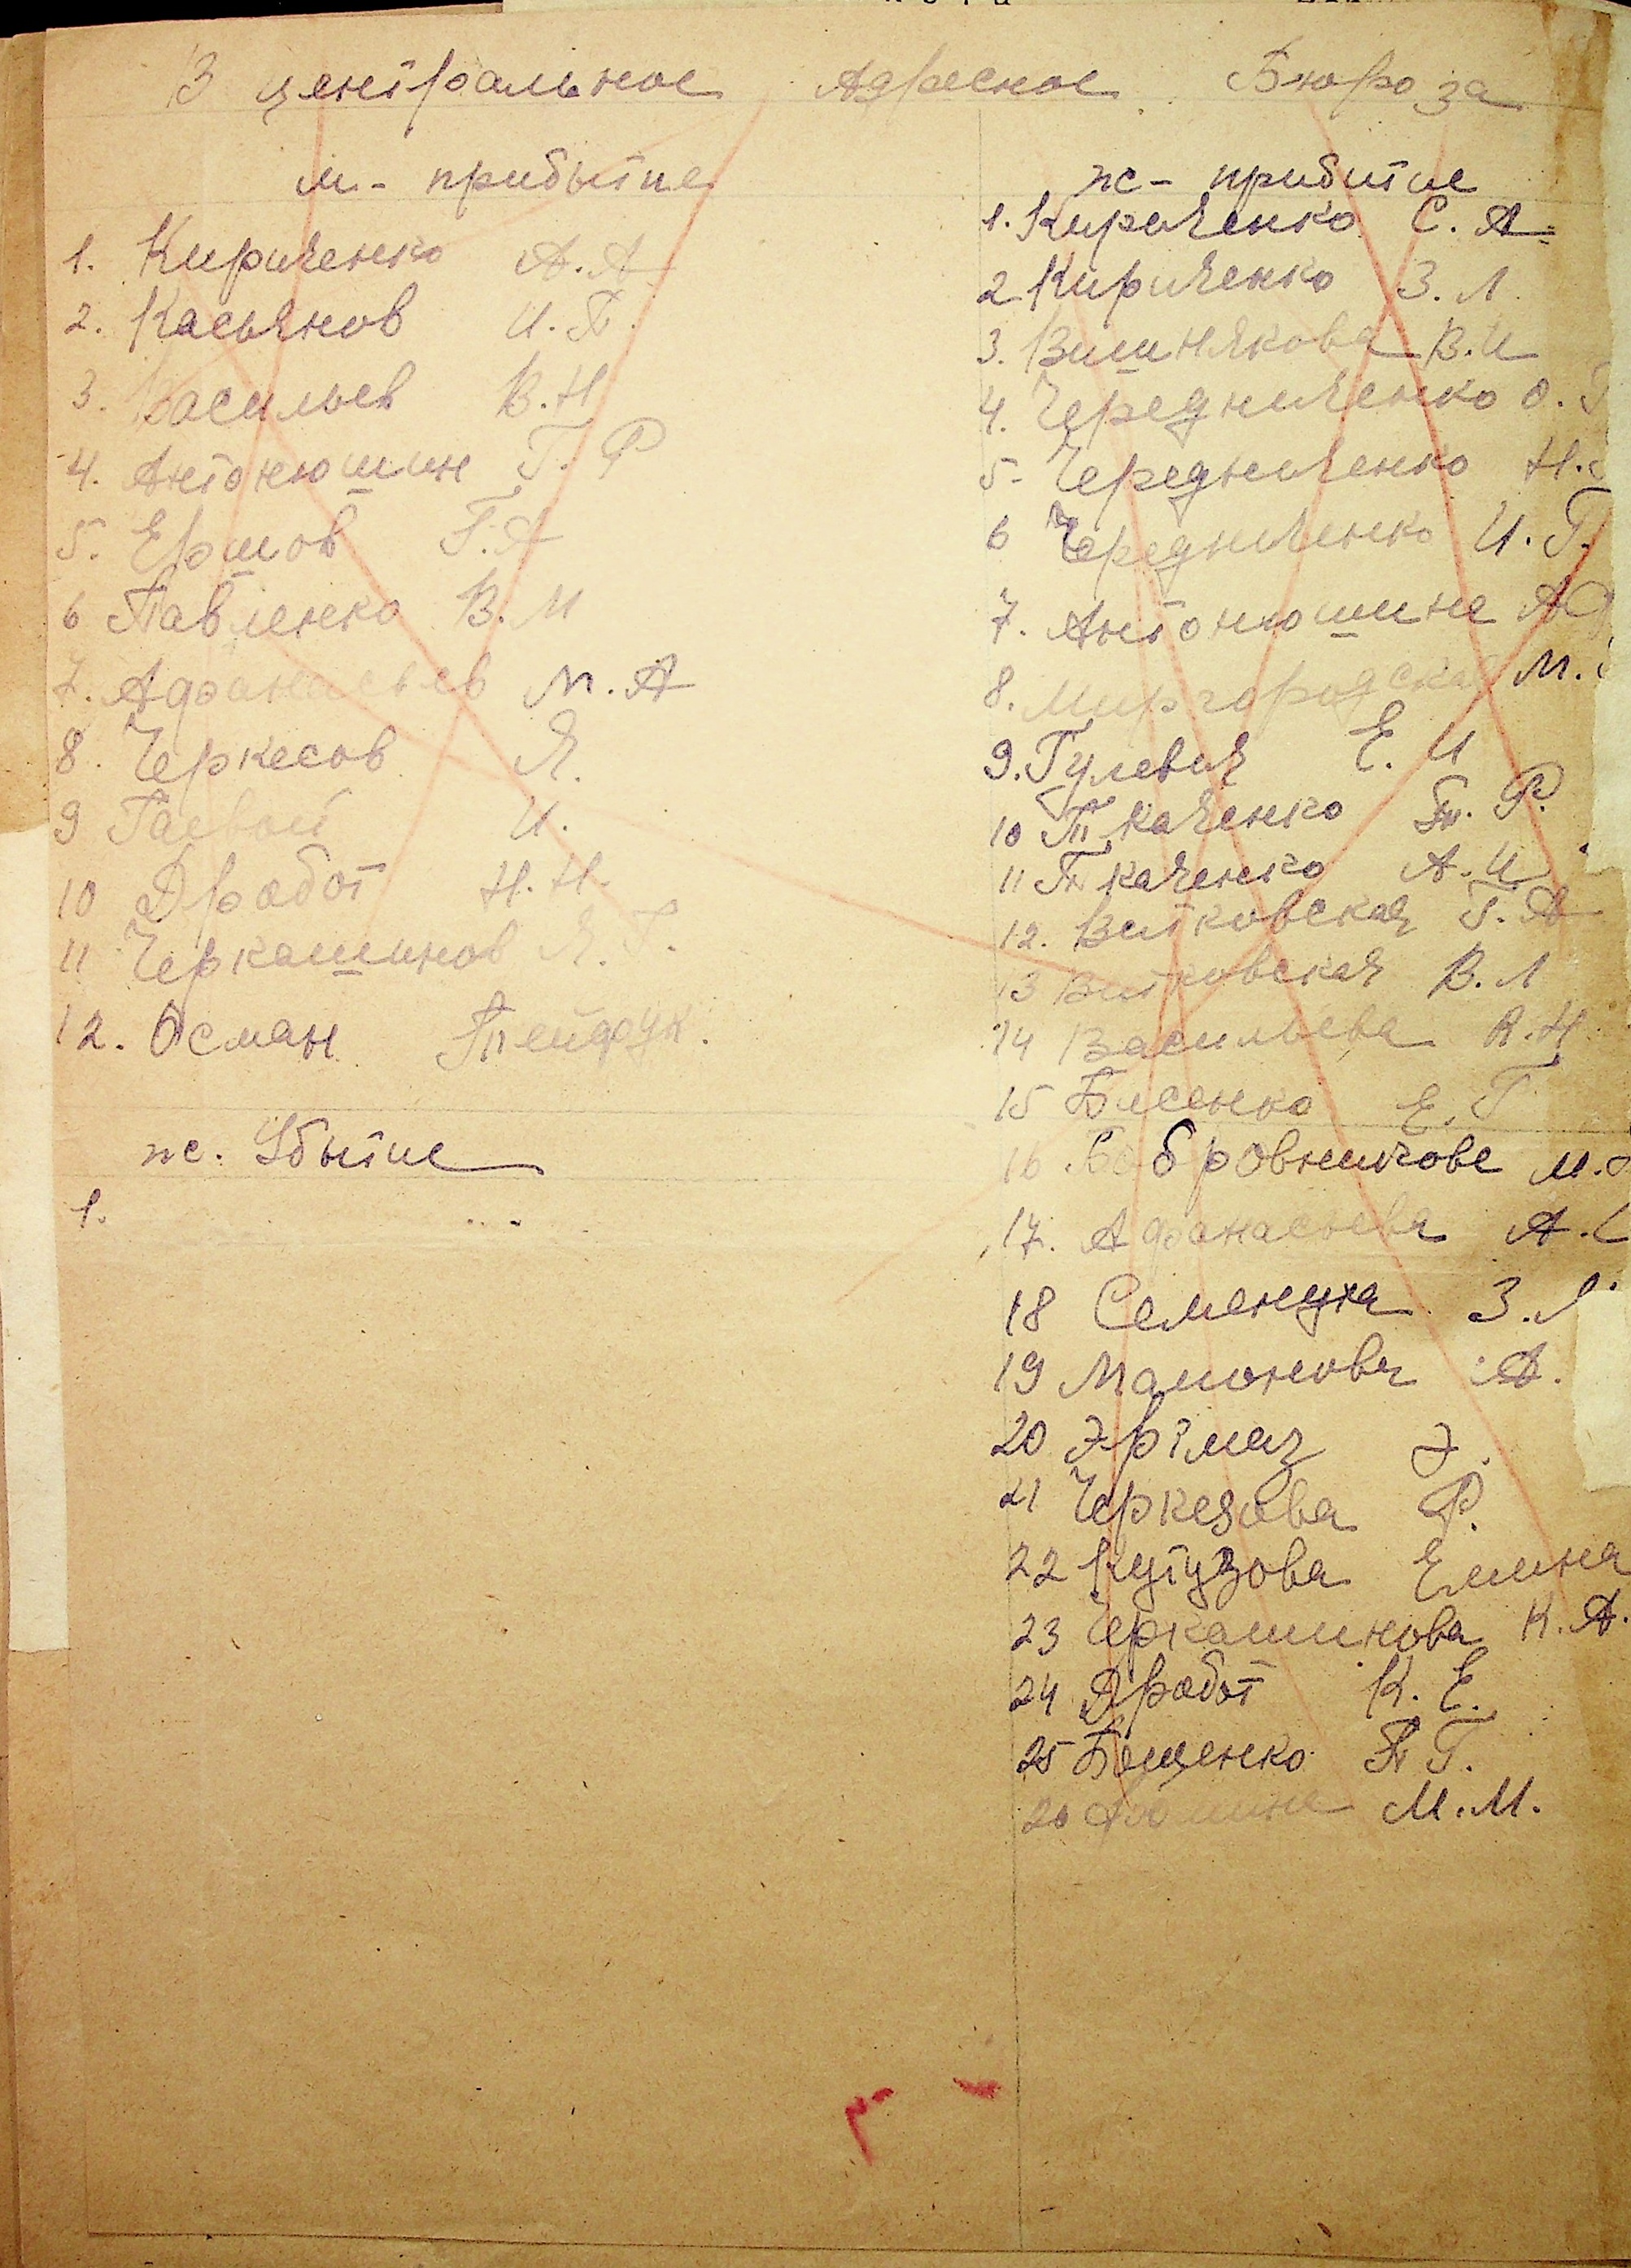 В центральное Адресное Бюро за
м - прибытие
1. Кириченко А. А
2. Касьянов И. П.
3. Васильев В. Н
4. Антонюшин Г. Ф
5. Ершов Г. А
6 Павленко В. И
7. Афанасьев М. А
8. Черкесов Я.
9 Гаевой И.
10 Дробот Н. Н.
11 Черкашинов Я. Г.
12. Осман Тейфук.
ж. Убытие
1.
ж - прибытие
1. Кириченко С. А.
2 Кириченко З. Л.
3. Вишнякова В. И
4. Чередниченко О. Г
5. Чередниченко Н.
6 Чередниченко И. Г.
7. Антонюшина А Ф
8. Миргородская М.
9. Гулевич Е. И
10 Ткаченко Т. Ф.
11 Ткаченко А. И
12. Витковская Г. А
13 Витковская В. Л
14 Васильева А. Н
15 Е. Г
16 Бобровникова М.
17. Афанасьева А.
18 Семенуха З. Л.
19 Мамонова А.
20 Э.
21 Черкезова Ф.
22 Кутузова Емина
23 Черкашинова К. А.
24 Дробот К. Е.
25 Бощенко П Г.
26 М. М.